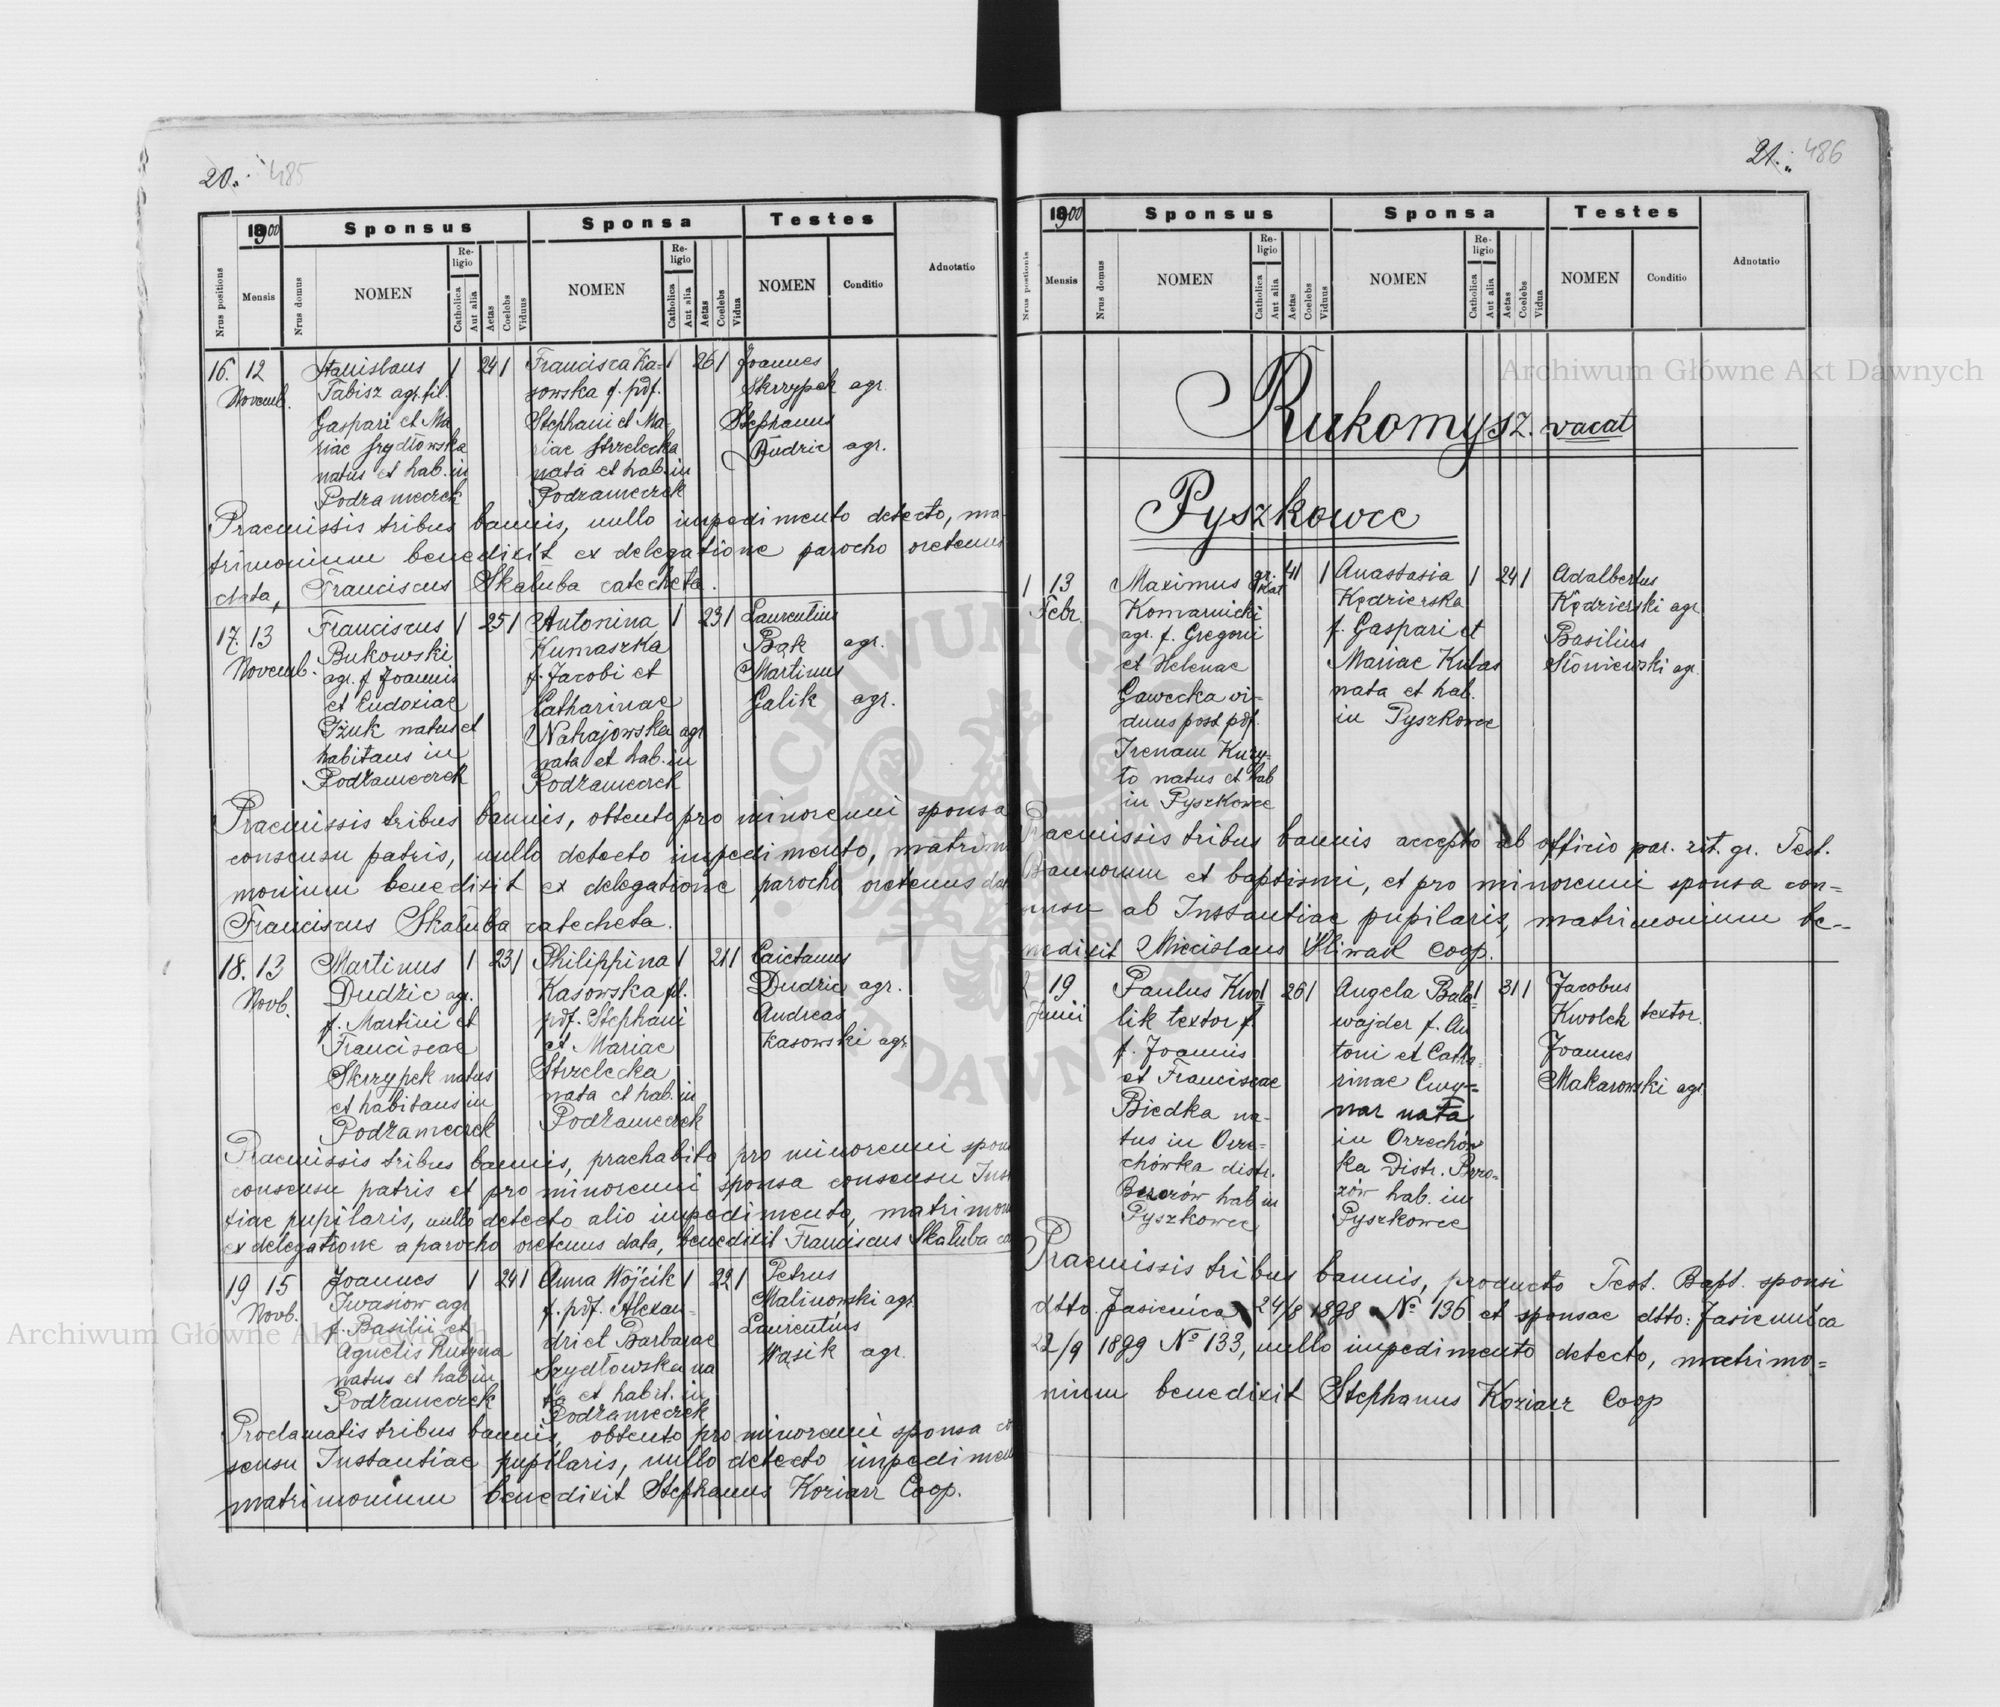 20. 485
1900
Sponsus
Sponsa
Testes
Nrus positions
Mensis
Nrus domus
NOMEN
Religio
Catholica
Aut alia
Aetas
Coelebs
Viduus
NOMEN
Religio
Catholica
Aut alia
Aetas
Coelebs
Vidua
NOMEN
Conditio
Adnotatio
16. 12 Stanislaus 1 24 1 Francisca Ka- 1 26 1 Joannes
Novemb. Tabisz agr. fil. sowska f. pdf. Skrzypek agr.
Gaspari et Ma Stephani et Ma- Stephanus
riae Szydłowska riae Strzelecka Dudzic agr.
natus et hab. in nata et hab. in
Podzameczek Podzameczek
Praemissis tribus bannis, nullo impedimento detecto, ma-
trimonium benedixit ex delegatione parocho oretenus
data, Franciscus Skałuba catecheta.
17. 13 Franciscus 1 25 1 Antonina 1 23 1 Laurentius
Novemb. Bukowski Kumaszka Bąk agr.
agr. f. Joannis f. Jacobi et Martinus
et Eudoxiae Catharinae Galik agr.
Iżuk natus et Nahajowska agr
habitans in nata et hab. in
Podzameczek Podzameczek
Praemissis tribus bannis, obtento pro minorenni sponsa
consensu patris, nullo detecto impedimento, matrim
monium benedixit ex delegatione parocho oretenus da
Franciscus Skałuba catecheta.
18. 13 Martinus 1 23 1 Philippina 1 21 1 Caietanus
Novb. Dudzic agr. Kasowska fil. Dudzic agr.
f. Martini et pdf. Stephani Andreas
Franciscae et Mariae Kasowski agr.
Skrzypek natus Strzelecka
et habitans in nata et hab. in
Podzameczek Podzameczek
Praemissis tribus bannis, praehabito pro minorenni spon
consensu patris et pro minorenni sponsa consensu Inst
tiae pupilaris, nullo detecto alio impedimento, matrimon
ex delegatione a parocho oretenus data, benedixit Franciscus Skałuba ca
19 15 Joannes 1 24 1 Anna Wójcik 1 22 1 Petrus
Novb. Iwasiow agr. f. pdf. Alexan- Malinowski agr.
f. Basilii et dri et Barbarae Laurentius
Agnetis Rutyna Szydłowska na Wąsik agr.
natus et hab in ta et habit. in
Podzameczek Podzameczek
Proclamatis tribus bannis, obtento pro minorenni sponsa co
sensu Instantiae pupilaris, nullo detecto impedimen
matrimonium benedixit Stephanus Koziarz Coop.
21. 486
1900
Sponsus
Sponsa
Testes
Nrus positionis
Mensis
Nrus domus
NOMEN
Religio
Catholica
Aut alia
Aetas
Coelebs
Viduus
NOMEN
Religio
Catholica
Aut alia
Aetas
Coelebs
Vidua
NOMEN
Conditio
Adnotatio
Rukomysz. vacat
Pyszkowce
1 13 Maximus gr. kat 41 1 Anastasia 1 24 1 Adalbertus
Febr. Komarnicki Kędzierska Kędzierski agr
agr. f. Gregorii f. Gaspari et Basilius
et Helenae Mariae Kutas Słoniewski agr.
Gawecka vi- nata et hab.
duus post pdf. in Pyszkowce
Irenam Kury-
to natus et hab
in Pyszkowce
Praemissis tribus bannis accepto ab officio par. rit. gr. Test.
Bannorum et baptismi, et pro minorenni sponsa con=
sensu ab Instantiae pupilaris, matrimonium be--
nedixit Miecislaus Śliwak coop.
2 19 Paulus Kwo- 1 26 1 Angela Bala- 1 31 1 Jacobus
Junii lik textor f. wajder f. An Kwolek textor.
f. Joannis toni et Catha- Joannes
et Franciscae rinae Cwy- Makarowski agr
Biedka na- nar nata
tus in Orze- in Orzechów
chówka distr. ka Distr. Brzo-
Brzozów hab in zów hab. in
Pyszkowce Pyszkowce
Praemissis tribus bannis, producto Test. Bapt. sponsi
dtto. Jasienica 24/8 1898 No 136 et sponsae dtto: Jasienica
22/9 1899 No 133, nullo impedimento detecto, matrimo=
nium benedixit Stephanus Koziarz Coop
Archiwum Główne Akt Dawnych
Archiwum Główne Akt Dawnych
ARCHIWUM GŁ
DAWN